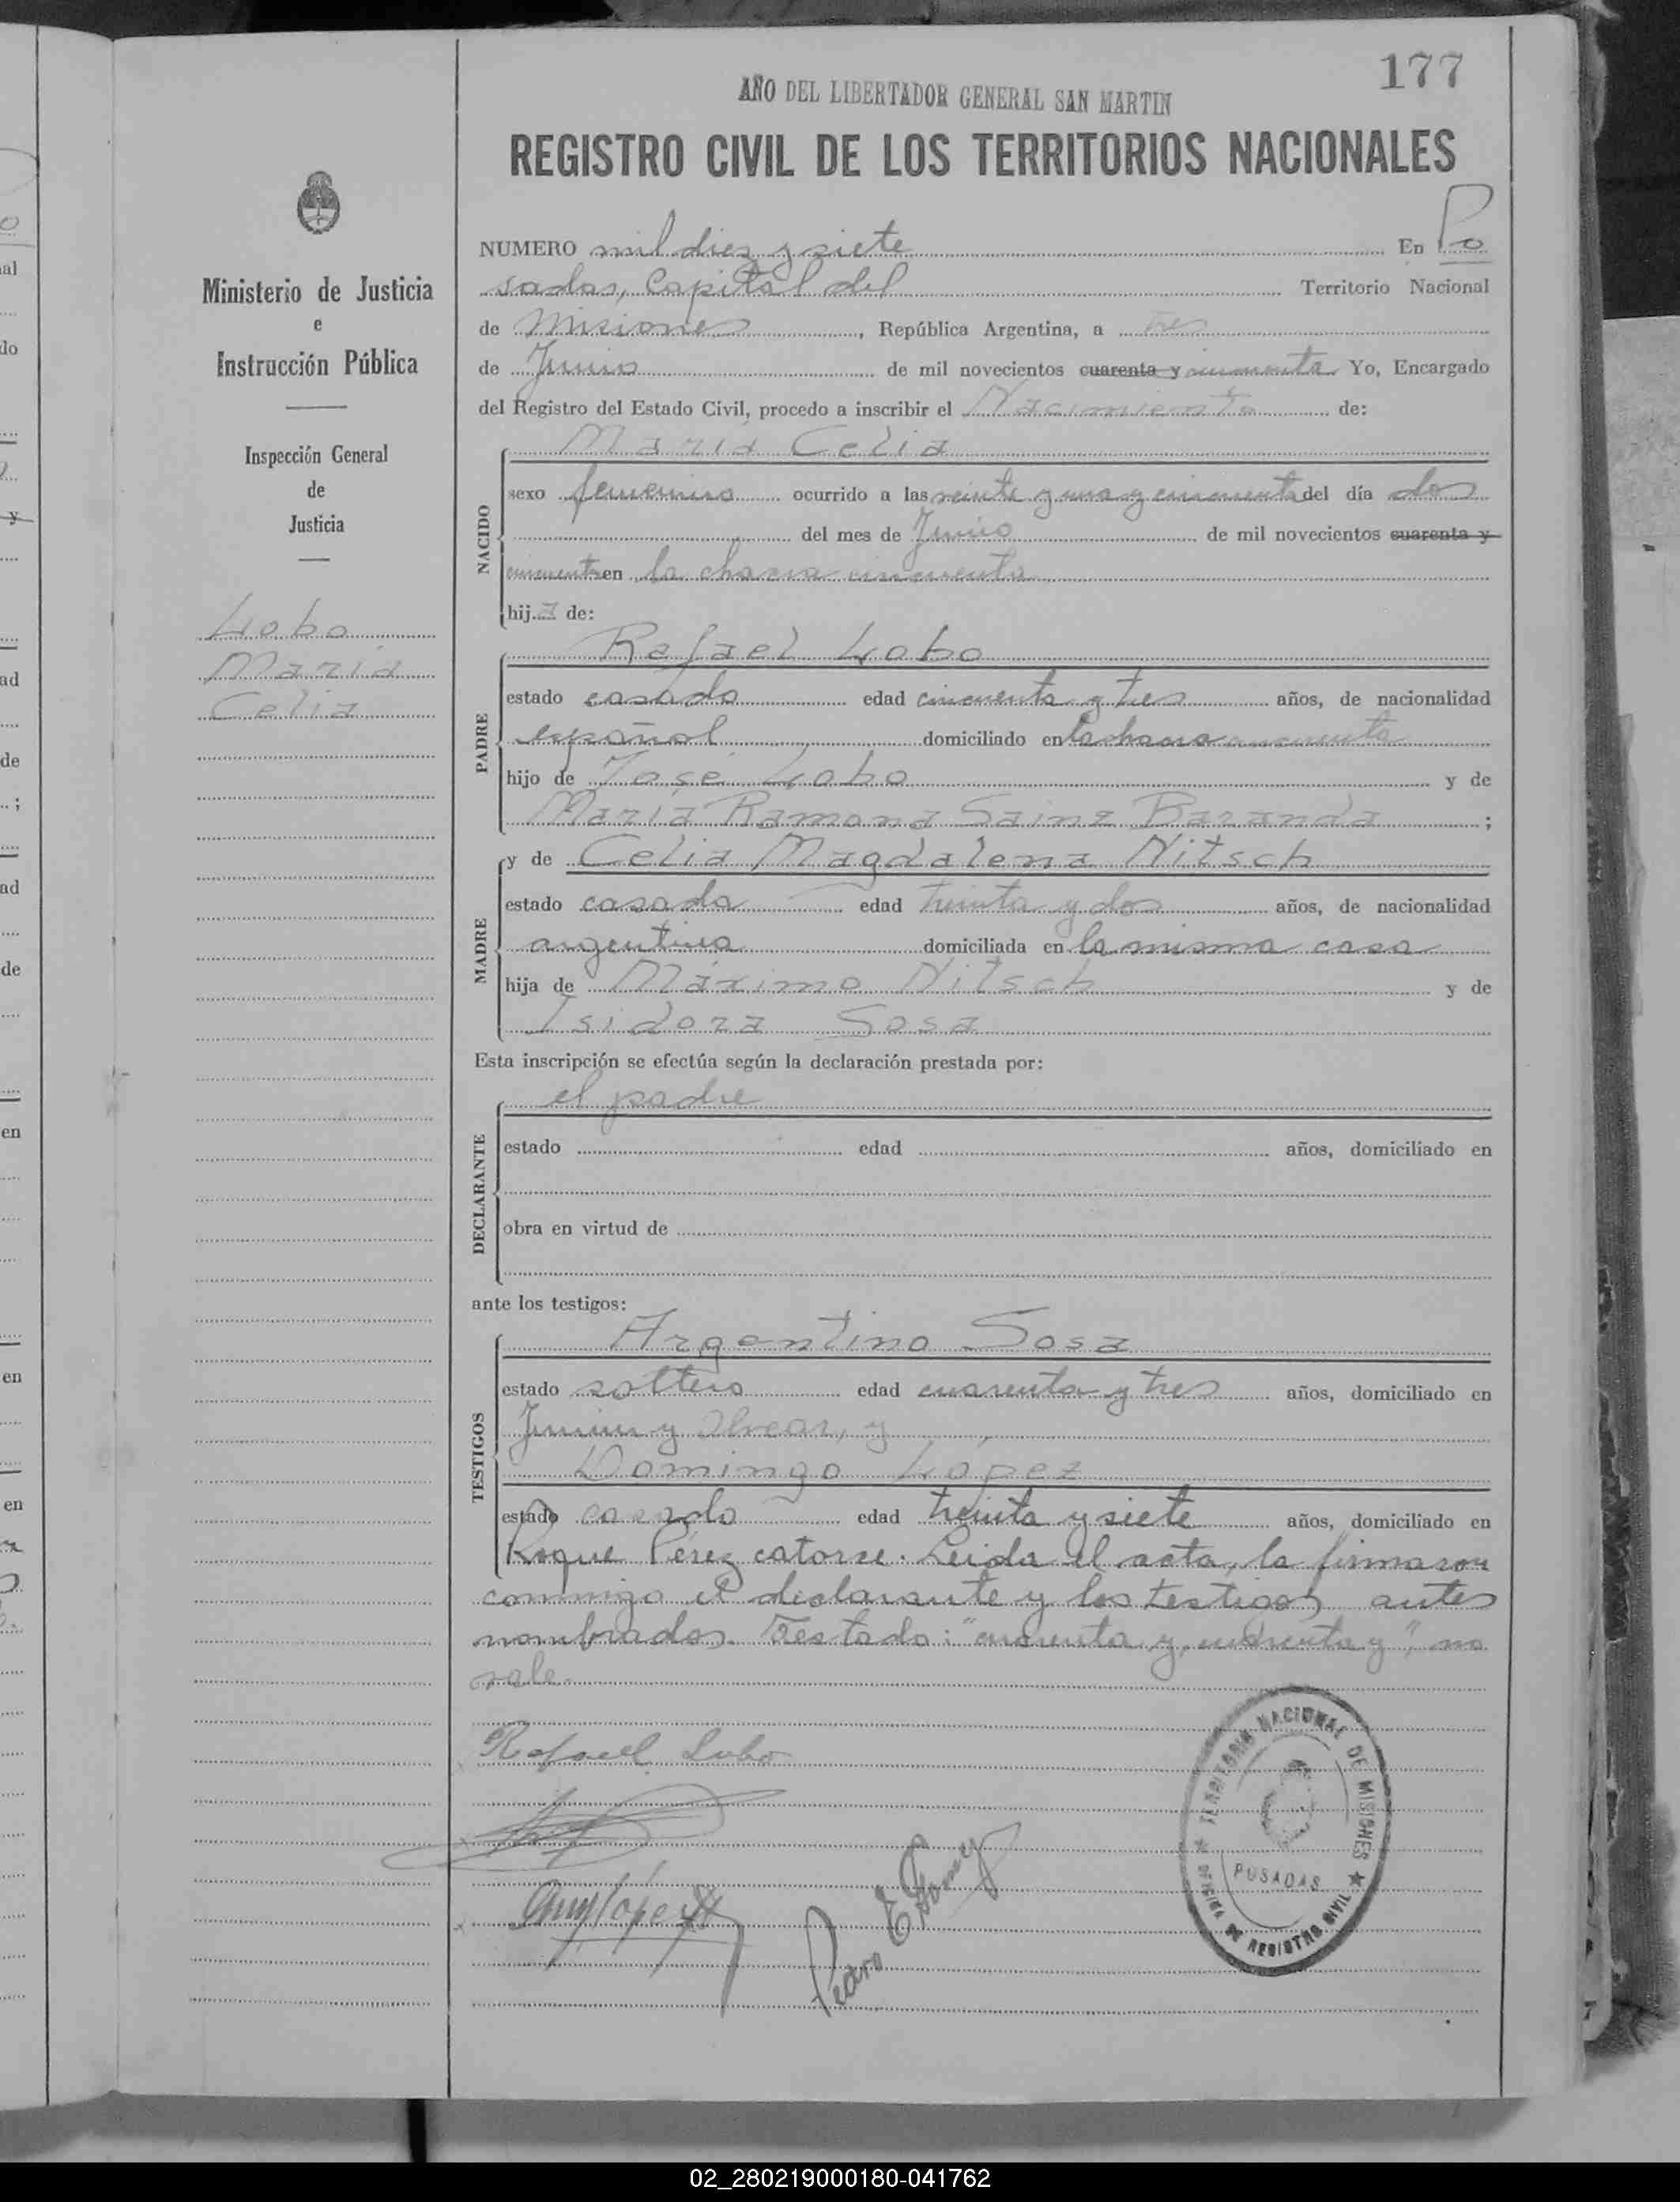 177
AÑO DEL LIBERTADOR GENERAL SAN MARTIN
REGISTRO CIVIL DE LOS TERRITORIOS NACIONALES
Ministerio de Justicia
e
Instrucción Pública
Inspección General
de
Justicia
Lobo
María
Celia
NUMERO mil diez y siete En Po
sadas, Capital del Territorio Nacional
de Misiones, República Argentina, a tres
de Junio de mil novecientos cuarenta y cincuenta Yo, Encargado
del Registro del Estado Civil, procedo a inscribir el Nacimiento de:
NACIDO
María Celia
sexo femenino ocurrido a las veinte y una y cincuenta del día dos
del mes de Junio de mil novecientos cuarenta y
cincuenta en la chacra cincuenta
hija de:
PADRE
Rafael Lobo
estado casado edad cincuenta y tres años, de nacionalidad
español domiciliado en la chacra cincuenta
hijo de José Lobo y de
María Ramona Sainz Baranda ;
MADRE
y de Celia Magdalena Nitsch
estado casada edad treinta y dos años, de nacionalidad
argentina domiciliada en la misma casa
hija de Máximo Nitsch y de
Isidora Sosa
Esta inscripción se efectúa según la declaración prestada por:
DECLARANTE
el padre
estado edad años, domiciliado en
obra en virtud de
ante los testigos:
TESTIGOS
Argentino Sosa
estado soltero edad cuarenta y tres años, domiciliado en
Junin y Alvear, y
Domingo López
estado casado edad treinta y siete años, domiciliado en
Roque Pérez catorse. Leida el acta, la firmaron
conmigo el declarante y los testigos antes
nombrados. Testado: "cuarenta y, cuarenta y", no
vale.
Rafael Lobo
TERRITORIO NACIONAL DE MISIONES
POSADAS
OFICINA DE REGISTRO CIVIL
02_280219000180-041762